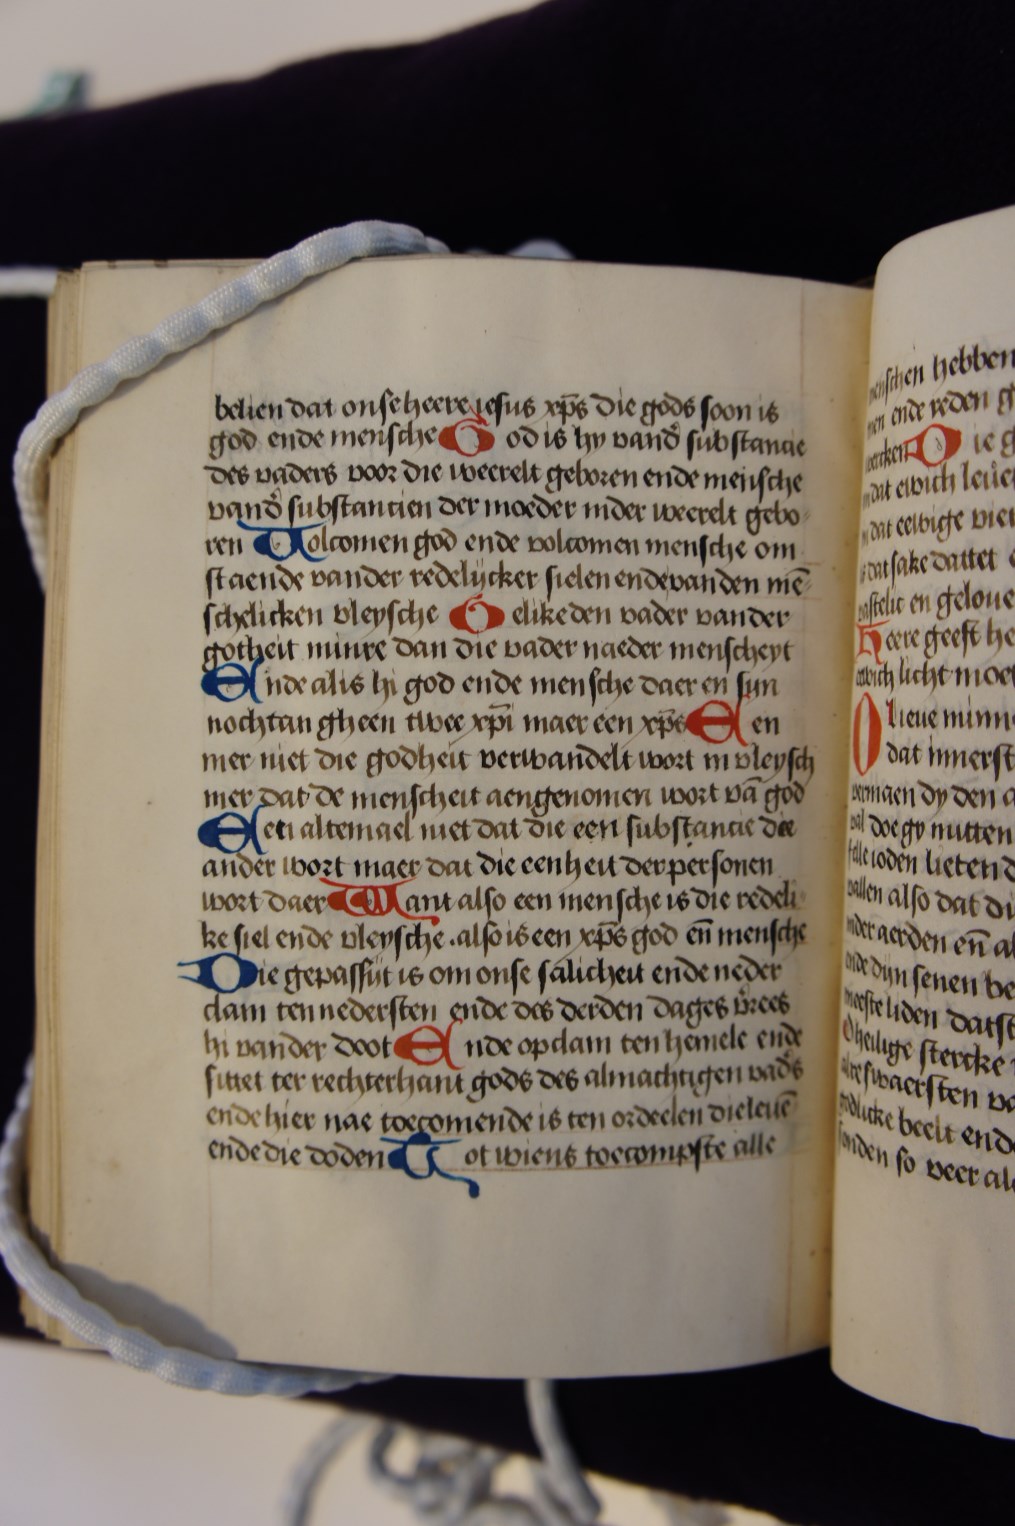 belien dat onse heere iesus xp̄s die gods soon is
god ende mensche God is hy vand substantie
des vaders voor die weerelt geboren ende mensche
vand substantien der moeder inder weerelt gebo
ren Volcomen god ende volcomen mensche om
staende vander redelijcker sielen ende vanden mē
schelicken vleysche Gelike den vader vander
gotheit minre dan die vader naeder menscheyt
Ende al is hi god ende mensche daer en syn
nochtan gheen twee xp̄i maer een xp̄s Een
mer niet die godheit verwandelt wort in vleysch
mer dat de menscheit aengenomen wort vā god
altemael niet dat die een substantie die
ander wort maer dat die eenheit der personen
wort daer Want also een mensche is die redeli
ke siel ende vleysche . also is een xp̄s god en̄ mensche
Die gepassijt is om onse salicheit ende neder
clam ten nedersten ende des derden dages v̄rees
hi vander doot Ende op clam ten hemele ende
sittet ter rechterhant gods des almachtigen vads
ende hier nae toecomende is ten ordeelen die leuē
ende die doden Tot wiens toecompste alle
menschen hebben
men ende reden
wercken Die
dat ewich
dat eewige
dat sake dattet
en geloue
Heere geest
licht moet
O lieue
dat innerst
dy den
doe gy mitten
ioden lieten
vallen also dat
aerden en̄
ende dijn senen
meeste liden datst
O heilige stercke
swaersten
godlicke beelt ende
sonden so veer